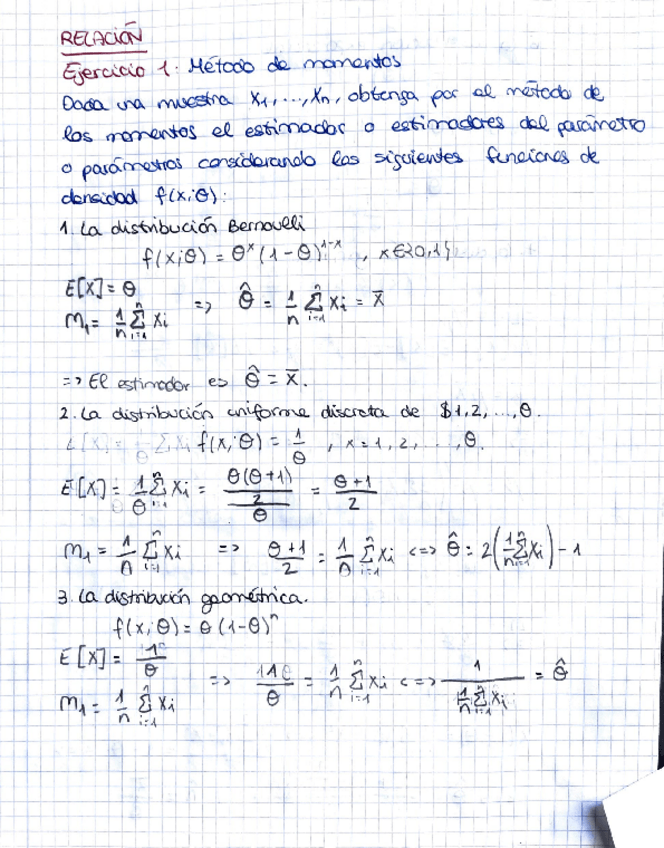 RELACIÓN
Ejercicio 1: Método de momentos
Dada una muestra X₁,...,Xn, obtenga por el método de
los momentos el estimador o estimadores del parámetro
o parámetros considerando las siguientes funciones de
densidad f(x;θ):
1. La distribución Bernoulli
f(x;θ) = θ^x (1-θ)^{1-x} , x∈{0,1}
E[X] = θ
m₁ = 1/n Σ_{i=1}^n Xi => θ̂ = 1/n Σ_{i=1}^n Xi = X̄
=> El estimador es θ̂ = X̄.
2. La distribución uniforme discreta de $1,2,...,θ.
f(x;θ) = 1/θ , x = 1,2,...,θ.
E[X] = 1/θ Σ_{i=1}^n Xi = (θ(θ+1)/2)/θ = (θ+1)/2
m₁ = 1/n Σ_{i=1}^n Xi => (θ+1)/2 = 1/n Σ_{i=1}^n Xi <=> θ̂ = 2(1/n Σ_{i=1}^n Xi) - 1
3. La distribución geométrica.
f(x;θ) = θ(1-θ)^n
E[X] = 1/θ
m₁ = 1/n Σ_{i=1}^n Xi => /θ = 1/n Σ_{i=1}^n Xi <=> 1/(1/n Σ_{i=1}^n Xi) = θ̂